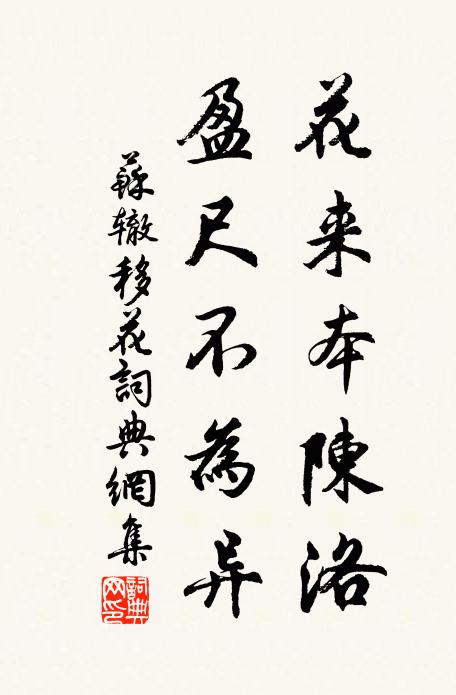 花来本陳洛
盈尺不為异
蘇辙移花詞典網集
詞典网印